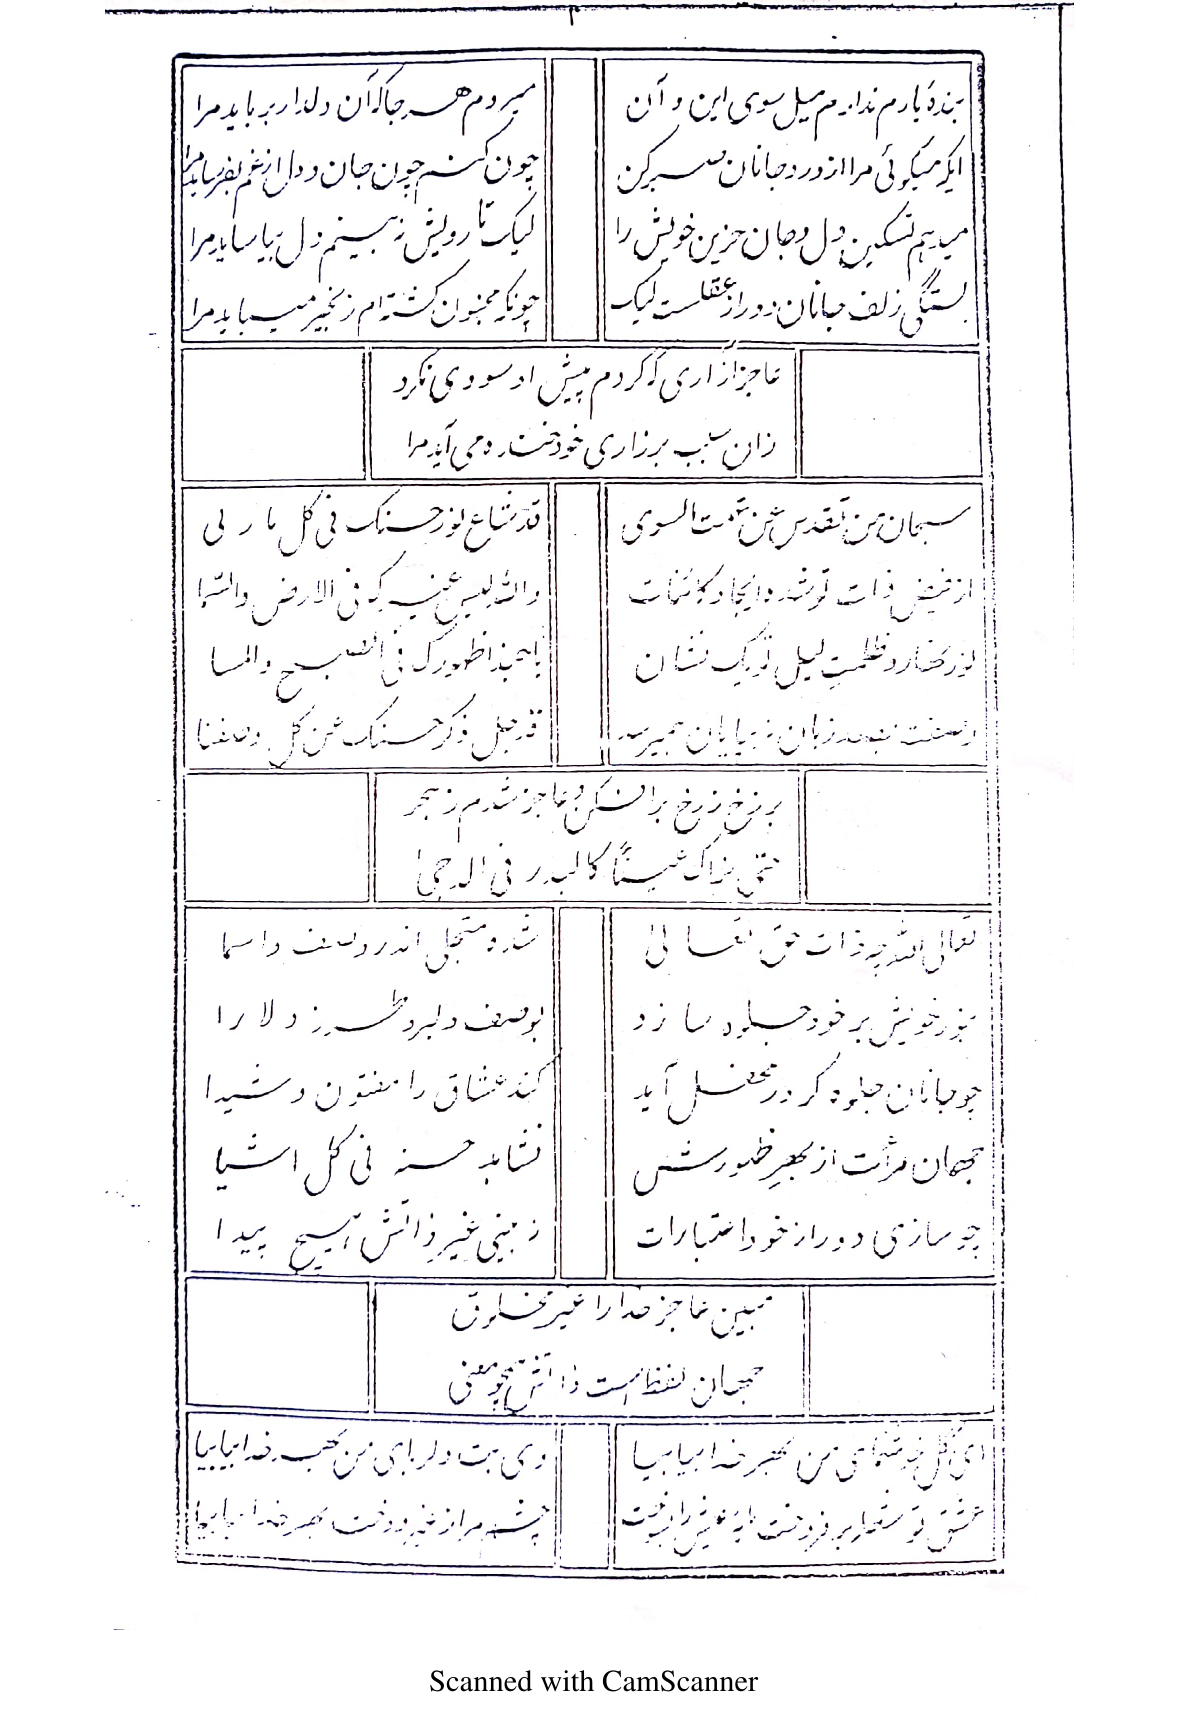 بندهٔ یارم ندارم میل سوی این و آن
میروم هر جا که آن دلدار برباید مرا
ایکه میگوئی مرا از درد جانان صبر کن
چون کنم چون جان و دل از غم بفرساید مرا
میدهم تسکین دل و جان حزین خویش را
لیک تا رویش نه بینم دل نیاساید مرا
بستگی زلف جانان دور از عقلست لیک
چونکه مجنون گشته ام زنجیر میباید مرا
عاجز آزاری که کردم پیش او سودی نکرد
زان سبب بر زاری خود خنده می آید مرا
سبحان من تقدس عن تهمت السوی
قد شاع نور حسنک فی کل ما یری
از فیض ذات تو شده ایجاد کائنات
والله لیس غیرک فی الارض والسما
نور نهار و ظلمت لیل تو یک نشان
یا حبذا ظهورک فی الصبح والمسا
وصفت بصد زبان نه بپایان همیرسد
قد جل ذکر حسنک عن کل وصفنا
برزخ ز رخ برافکن و عاجز شدم ز هجر
حتی نراک عیناً کالبدر فی الدجی
تعالی الله چه ذات حق تعالی
شده متجلی اندر وصف و اسما
بنور خویش بر خود جلوه سازد
بوصف دلبر و طرز دلارا
چو جانان جلوه گر در محفل آید
کند عشاق را مفتون و شیدا
جهان مرآت از بهر ظهورش
نشاهد حسنه فی کل اشیا
چو سازی دور از خود اعتبارات
نه بینی غیر ذاتش هیچ پیدا
مبین عاجز خدا را غیر مخلوق
جهان لفظ است ذاتش همچو معنی
ای گل خوشنمای من بهر خدا بیا بیا
وی بت دلربای من بهر خدا بیا بیا
عشق تو شعله بر فروخت
چشم مرا ز غیر دوخت بهر خدا بیا بیا
Scanned with CamScanner